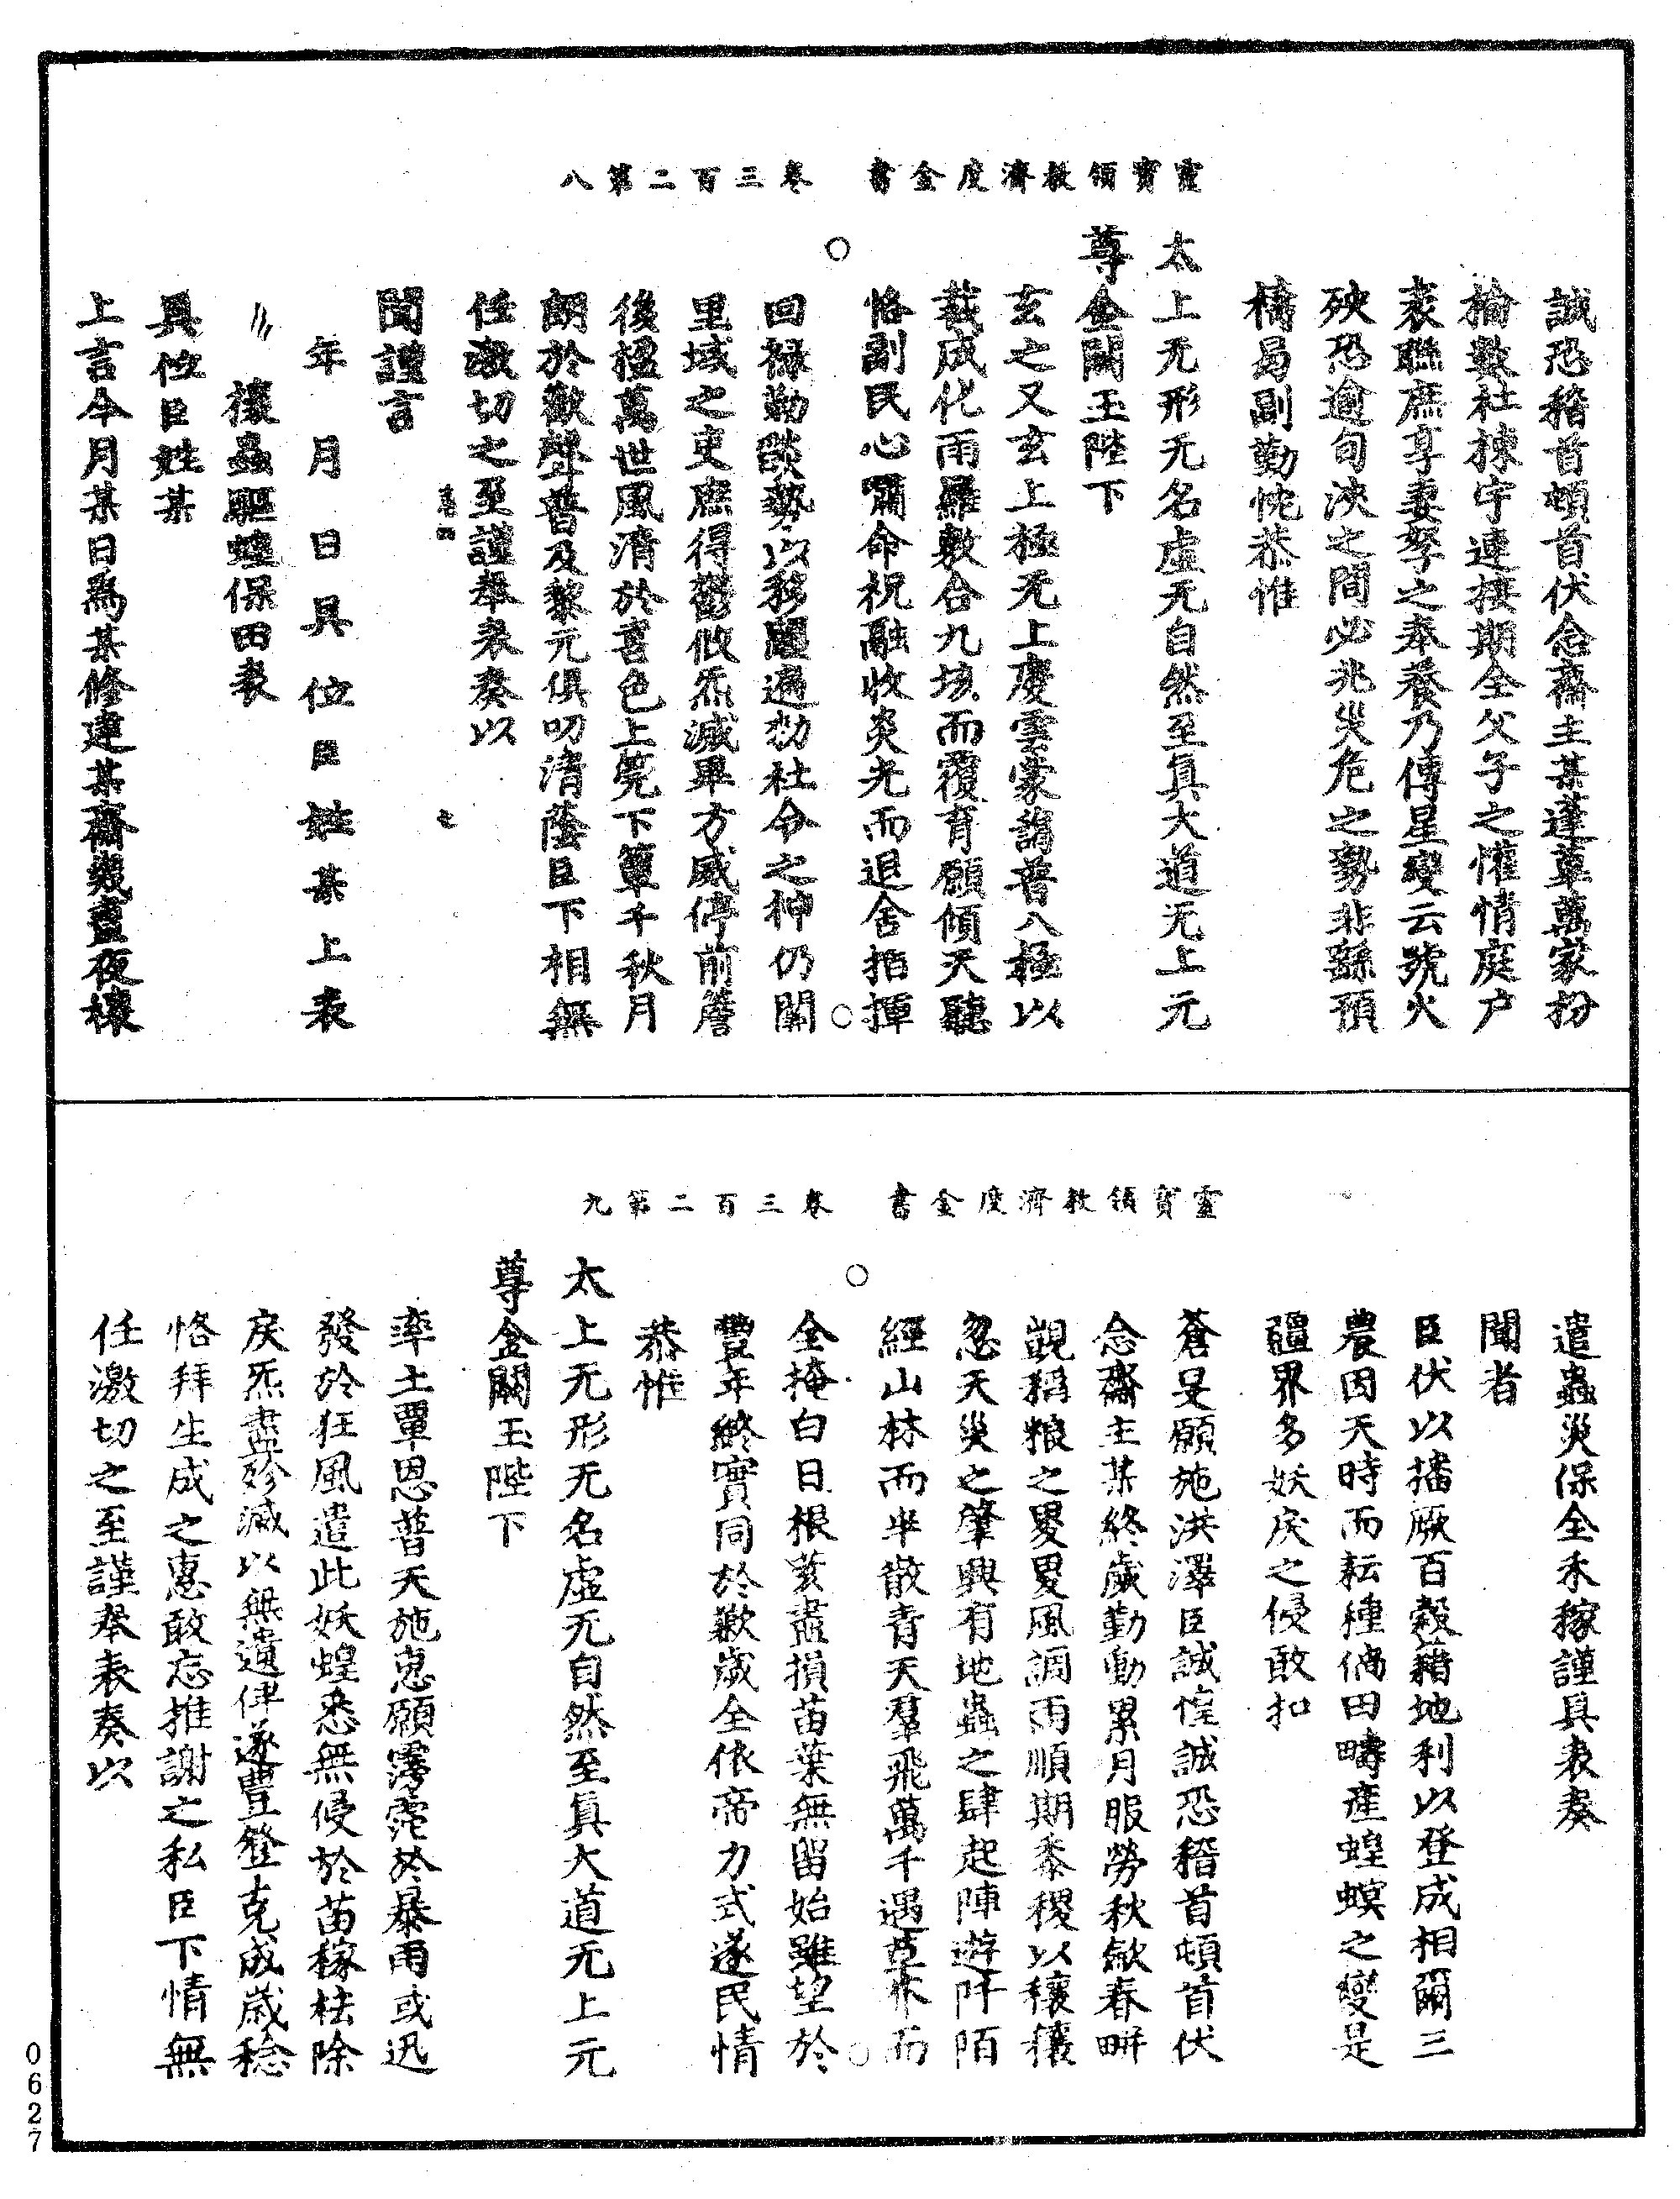 靈寶領教濟度金書　卷三百二第八
誠恐稽首頓首伏念齋主某蓬蓽萬家枌
榆數社揀宇連接期全父子之懽情庭户
衷聮庶享妻孥之奉養乃傳星變云號火
殃恐逾旬浹之間必兆災危之勢非繇預
禱曷副勤忱恭惟
太上无形无名虚无自然至真大道无上元
尊金闕玉陛下
玄之又玄上極无上慶雲蒙謁普八極以
裁成化雨羅敷合九垓而覆育願傾天聽
恪副民心嚼命祝融收炎光而退舍指揮
回禄勒燄勢以移躔過劾社令之神仍關
里域之吏庶得鬱攸炁滅畢方威停前簷
後楹萬世風清於書色上筦下簟千秋月
朗於歡聲普及黎元俱叨清蔭臣下相無
任激切之至謹奉表奏以
聞謹言
年　月　日具位臣姓某上表
禳蟲驅蝗保田表
具位臣姓某
上言今月某日爲某修建某齋幾晝夜禳
靈寶領教濟度金書　卷三百二第九
遣蟲災保全禾稼謹具表奏
聞者
臣伏以播厥百穀藉地利以登成相爾三
農因天時而耘種倘田疇產蝗螟之變是
疆界多妖戾之侵敢扣
蒼旻願施洪澤臣誠惶誠恐稽首頓首伏
念齋主某終歲勤動累月服勞秋歛春畊
覬稱粮之畟畟風調雨順期黍稷以穰穰
忽天災之肇興有地蟲之肆起陣遊阡陌
經山林而半散青天羣飛萬千遇草木而
全掩白日根荄盡損苗葉無留始雖望於
豐年終實同於歉歲全依帝力式遂民情
恭惟
太上无形无名虚无自然至真大道无上元
尊金闕玉陛下
率土覃恩普天施惠願霶霈於暴雨或迅
發於狂風遣此妖蝗悉無侵於苗稼袪除
戾炁盡殄滅以無遺俾遂豊登克成歳稔
恪拜生成之惠敢忘推謝之私臣下情無
任激切之至謹奉表奏以
0627